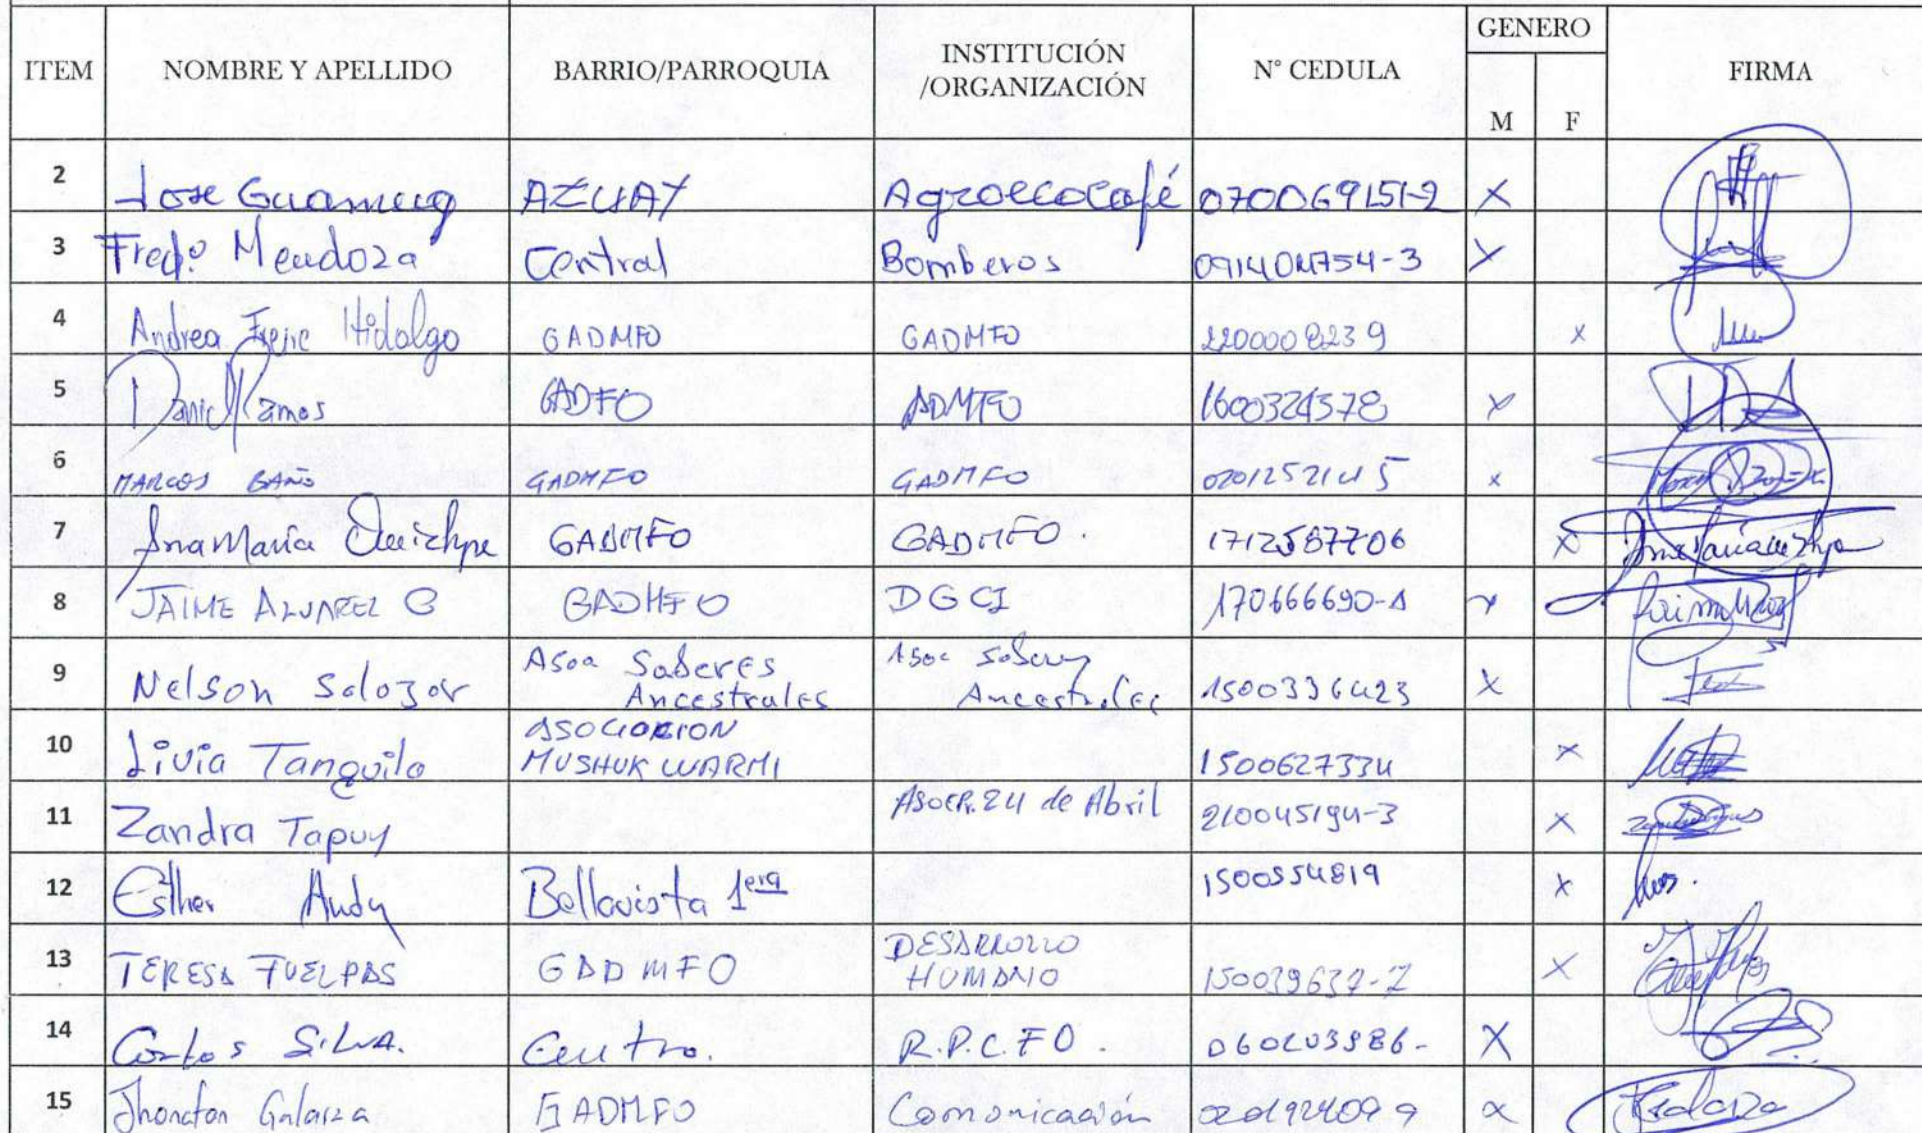 ITEM NOMBRE Y APELLIDO BARRIO/PARROQUIA INSTITUCIÓN /ORGANIZACIÓN N° CEDULA GENERO M F FIRMA
2 Jose Guamug AZUAY Agroecocafé 070069151-2 X
3 Fredo Mendoza Central Bomberos X
4 Andrea Freire Hidalgo GADMFO GADMFO 2200008239 x
5 Daniel Ramos GADFO ADMFO 1600324578 x
6 MARCOS BAÑO GADMFO GADMFO 0201252145 x
7 Ana María Quichpe GADMFO GADMFO. 1712587706 x
8 JAIME ALVAREZ G GADMFO DGCI 170666690-1 x
9 Nelson Salazar Asoa Saberes Ancestrales Asoc Saberes Ancestrales 1500336423 x
10 Livia Tanguila ASOCIACION MUSHUK WARMI 1500627334 x
11 Zandra Tapuy 24 de Abril 210045194-3 x
12 Esther Andy Bellavista 1era 1500554819 x
13 TERESA FUELPAS GADMFO DESARROLLO HUMANO 150039637-7 x
14 Carlos SILVA. Centro. R.P.C.FO. X
15 Jhonatan Galarza GADMFO Comonicación x